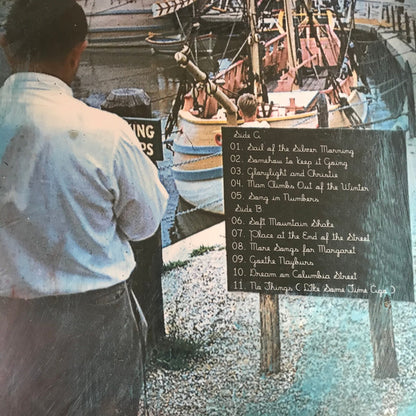 NING
PS.
Side A
01. Sail of the Silver Morning
02. Somehow to Keep it Going
03. Glorylight and Christie
04. Man Climbs Out of the Winter
05. Song in Numbers
Side B
06. Soft Mountain Shake
07. Place at the End of the Street
08. More Songs for Margaret
09. Goethe Nayburs
10. Dream on Columbia Street
11. No Things ( Like Some Time Ago )